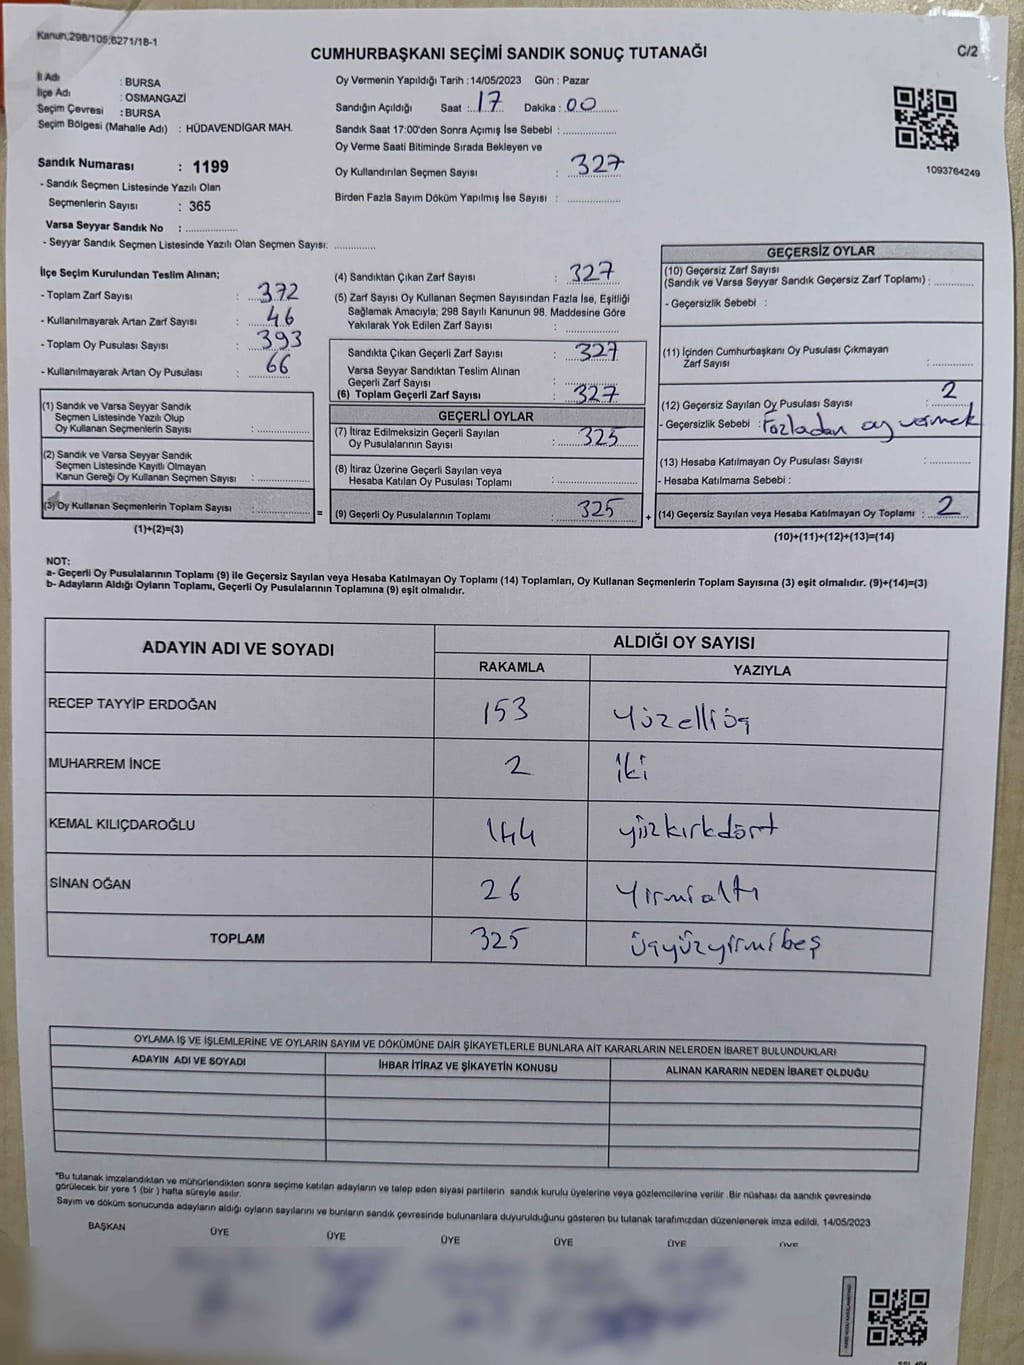 Kanun;298/105;6271/18-1
CUMHURBAŞKANI SEÇİMİ SANDIK SONUÇ TUTANAĞI
C/2
İl Adı : BURSA
İlçe Adı : OSMANGAZİ
Seçim Çevresi : BURSA
Seçim Bölgesi (Mahalle Adı) : HÜDAVENDİGAR MAH.
Oy Vermenin Yapıldığı Tarih : 14/05/2023 Gün : Pazar
Sandığın Açıldığı Saat : 17 Dakika : 00
Sandık Saat 17:00'den Sonra Açımış İse Sebebi :
Oy Verme Saati Bitiminde Sırada Bekleyen ve
Oy Kullandırılan Seçmen Sayısı : 327
Birden Fazla Sayım Döküm Yapılmış İse Sayısı :
1093764249
Sandık Numarası : 1199
- Sandık Seçmen Listesinde Yazılı Olan
Seçmenlerin Sayısı : 365
Varsa Seyyar Sandık No :
- Seyyar Sandık Seçmen Listesinde Yazılı Olan Seçmen Sayısı:
İlçe Seçim Kurulundan Teslim Alınan;
- Toplam Zarf Sayısı : 372
- Kullanılmayarak Artan Zarf Sayısı : 46
- Toplam Oy Pusulası Sayısı : 393
- Kullanılmayarak Artan Oy Pusulası : 66
(1) Sandık ve Varsa Seyyar Sandık
Seçmen Listesinde Yazılı Olup
Oy Kullanan Seçmenlerin Sayısı :
(2) Sandık ve Varsa Seyyar Sandık
Seçmen Listesinde Kayıtlı Olmayan
Kanun Gereği Oy Kullanan Seçmen Sayısı :
(3) Oy Kullanan Seçmenlerin Toplam Sayısı :
(1)+(2)=(3)
(4) Sandıktan Çıkan Zarf Sayısı : 327
(5) Zarf Sayısı Oy Kullanan Seçmen Sayısından Fazla İse, Eşitliği
Sağlamak Amacıyla; 298 Sayılı Kanunun 98. Maddesine Göre
Yakılarak Yok Edilen Zarf Sayısı :
Sandıkta Çıkan Geçerli Zarf Sayısı : 327
Varsa Seyyar Sandıktan Teslim Alınan
Geçerli Zarf Sayısı :
(6) Toplam Geçerli Zarf Sayısı : 327
GEÇERLİ OYLAR
(7) İtiraz Edilmeksizin Geçerli Sayılan
Oy Pusulalarının Sayısı : 325
(8) İtiraz Üzerine Geçerli Sayılan veya
Hesaba Katılan Oy Pusulası Toplamı :
= (9) Geçerli Oy Pusulalarının Toplamı : 325
GEÇERSİZ OYLAR
(10) Geçersiz Zarf Sayısı
(Sandık ve Varsa Seyyar Sandık Geçersiz Zarf Toplamı) :
- Geçersizlik Sebebi :
(11) İçinden Cumhurbaşkanı Oy Pusulası Çıkmayan
Zarf Sayısı :
(12) Geçersiz Sayılan Oy Pusulası Sayısı : 2
- Geçersizlik Sebebi : Fazladan oy vermek
(13) Hesaba Katılmayan Oy Pusulası Sayısı :
- Hesaba Katılmama Sebebi :
+ (14) Geçersiz Sayılan veya Hesaba Katılmayan Oy Toplamı : 2
(10)+(11)+(12)+(13)=(14)
NOT:
a- Geçerli Oy Pusulalarının Toplamı (9) ile Geçersiz Sayılan veya Hesaba Katılmayan Oy Toplamı (14) Toplamları, Oy Kullanan Seçmenlerin Toplam Sayısına (3) eşit olmalıdır. (9)+(14)=(3)
b- Adayların Aldığı Oyların Toplamı, Geçerli Oy Pusulalarının Toplamına (9) eşit olmalıdır.
ADAYIN ADI VE SOYADI
ALDIĞI OY SAYISI
RAKAMLA YAZIYLA
RECEP TAYYİP ERDOĞAN 153 Yüzelliüç
MUHARREM İNCE 2 iki
KEMAL KILIÇDAROĞLU 144 yüzkırkdört
SİNAN OĞAN 26 Yirmialtı
TOPLAM 325 üçyüzyirmibeş
OYLAMA İŞ VE İŞLEMLERİNE VE OYLARIN SAYIM VE DÖKÜMÜNE DAİR ŞİKAYETLERLE BUNLARA AİT KARARLARIN NELERDEN İBARET BULUNDUKLARI
ADAYIN ADI VE SOYADI İHBAR İTİRAZ VE ŞİKAYETİN KONUSU ALINAN KARARIN NEDEN İBARET OLDUĞU
*Bu tutanak imzalandıktan ve mühürlendikten sonra seçime katılan adayların ve talep eden siyasi partilerin sandık kurulu üyelerine veya gözlemcilerine verilir. Bir nüshası da sandık çevresinde
görülecek bir yere 1 (bir) hafta süreyle asılır.
Sayım ve döküm sonucunda adayların aldığı oyların sayılarını ve bunların sandık çevresinde bulunanlara duyurulduğunu gösteren bu tutanak tarafımızdan düzenlenerek imza edildi. 14/05/2023
BAŞKAN ÜYE ÜYE ÜYE ÜYE ÜYE ÜYE